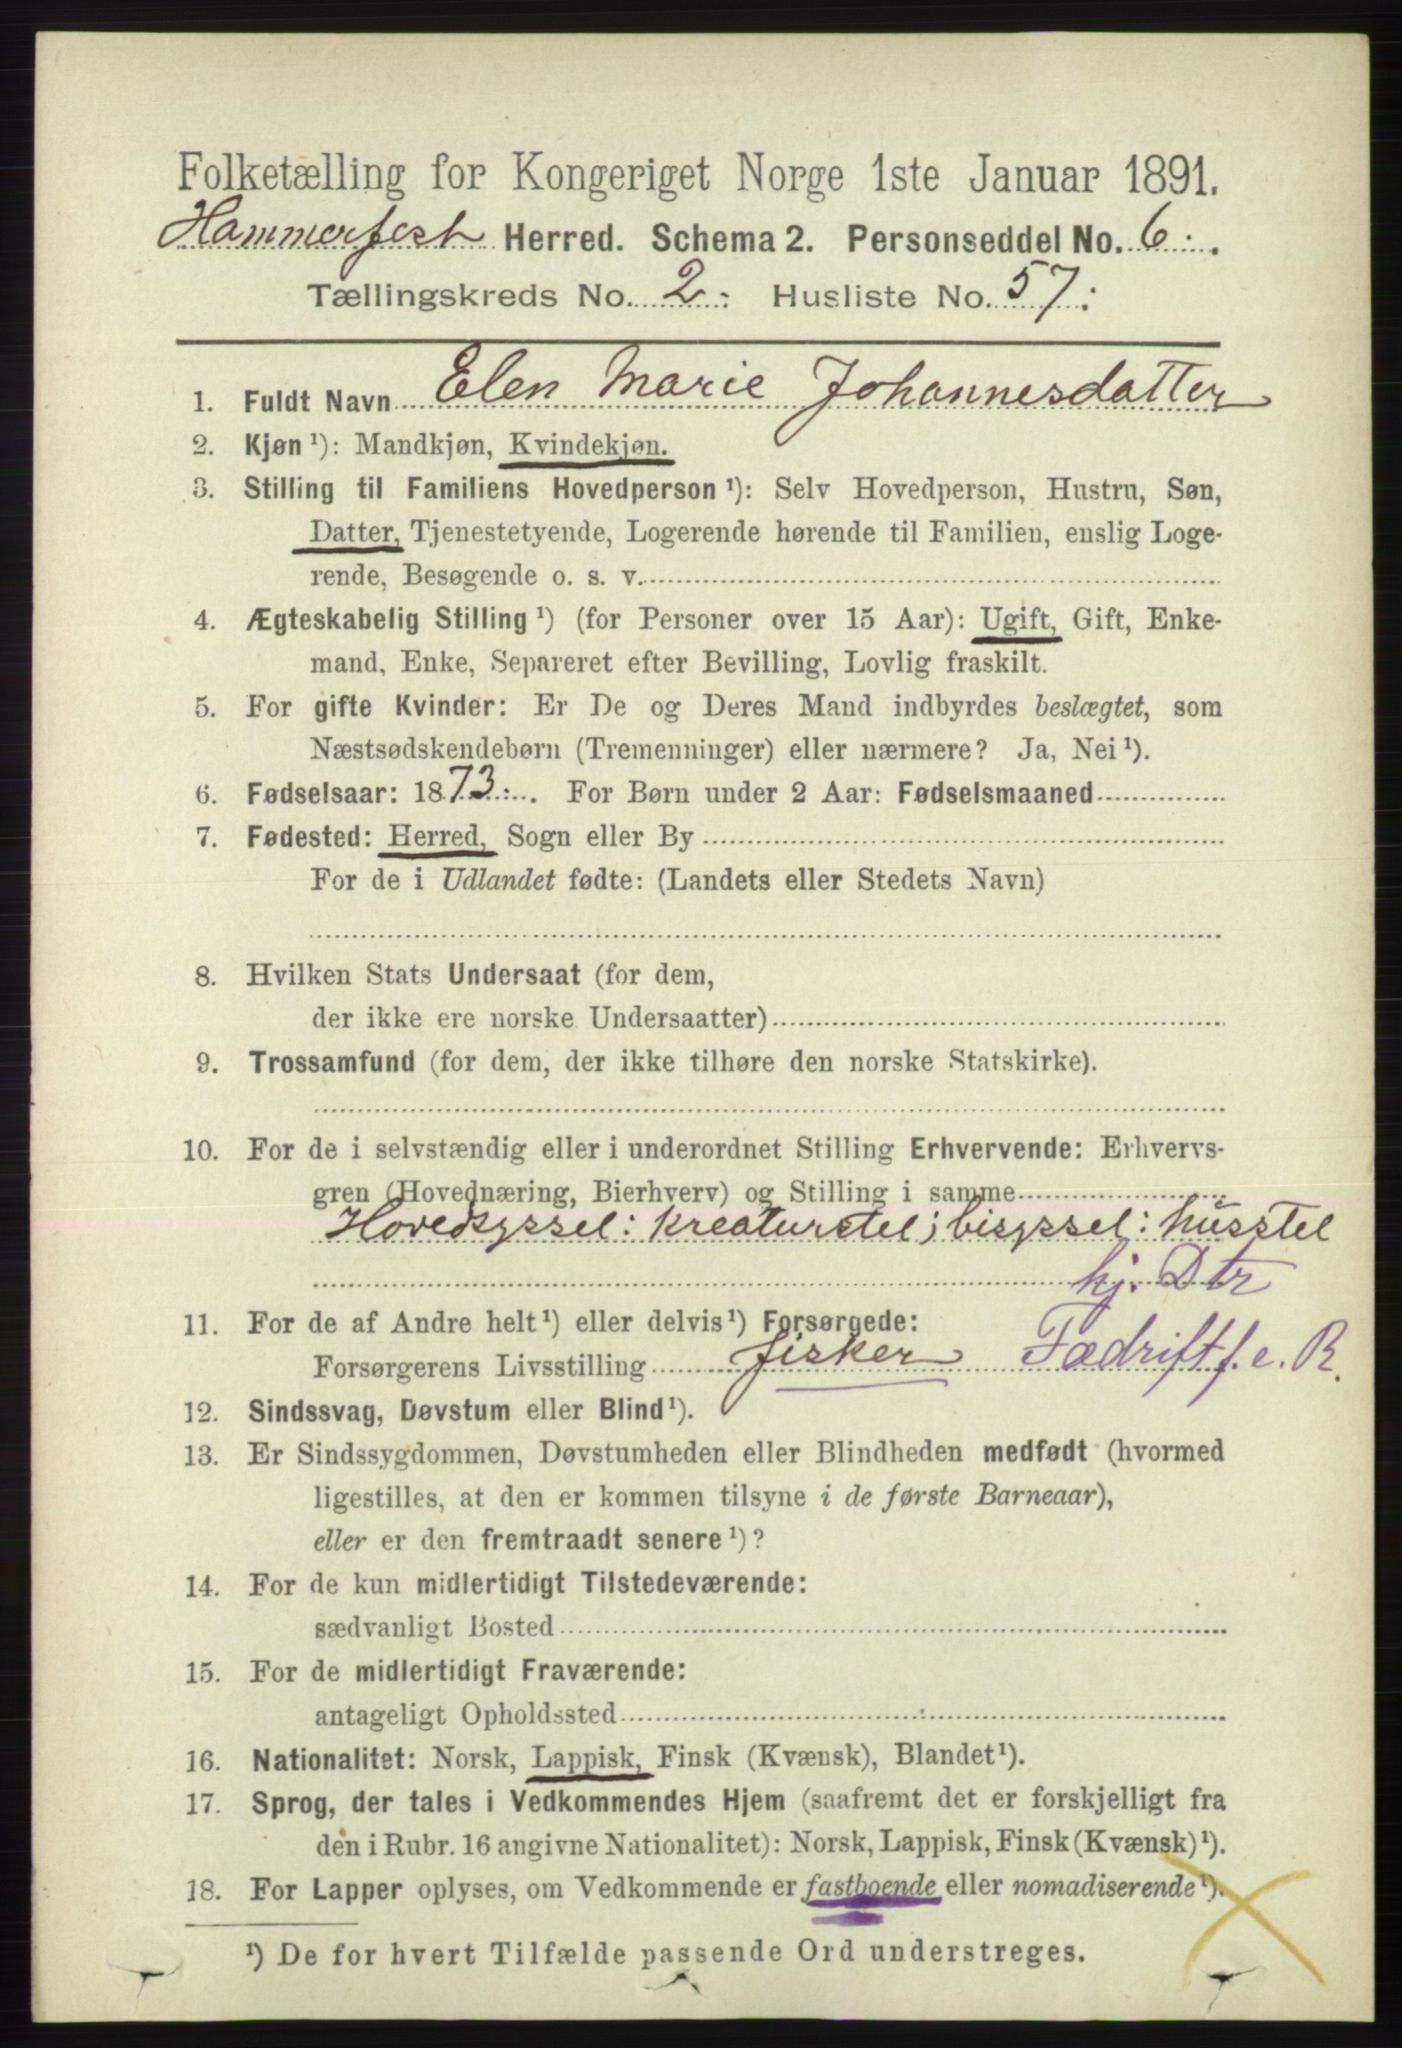 Folketælling for Kongeriget Norge 1ste Januar 1891.
Hammerfest Herred. Schema 2. Personseddel No. 6.
Tællingskreds No. 2. Husliste No. 57.
1. Fuldt Navn Elen Marie Johannesdatter
2. Kjøn ¹): Mandkjøn, Kvindekjøn.
3. Stilling til Familiens Hovedperson ¹): Selv Hovedperson, Hustru, Søn,
Datter, Tjenestetyende, Logerende hørende til Familien, enslig Loge-
rende, Besøgende o. s. v.
4. Ægteskabelig Stilling ¹) (for Personer over 15 Aar): Ugift, Gift, Enke-
mand, Enke, Separeret efter Bevilling, Lovlig fraskilt.
5. For gifte Kvinder: Er De og Deres Mand indbyrdes beslægtet, som
Næstsødskendebørn (Tremenninger) eller nærmere? Ja, Nei ¹).
6. Fødselsaar: 1873. For Børn under 2 Aar: Fødselsmaaned
7. Fødested: Herred, Sogn eller By
For de i Udlandet fødte: (Landets eller Stedets Navn)
8. Hvilken Stats Undersaat (for dem,
der ikke ere norske Undersaatter)
9. Trossamfund (for dem, der ikke tilhøre den norske Statskirke).
10. For de i selvstændig eller i underordnet Stilling Erhvervende: Erhvervs-
gren (Hovednæring, Bierhverv) og Stilling i samme
Hovedsyssel: kreaturstel; bisyssel: husstel
hj. Dtr
11. For de af Andre helt ¹) eller delvis ¹) Forsørgede:
Forsørgerens Livsstilling fisker Fædrift f. e. R.
12. Sindssvag, Døvstum eller Blind ¹).
13. Er Sindssygdommen, Døvstumheden eller Blindheden medfødt (hvormed
ligestilles, at den er kommen tilsyne i de første Barneaar),
eller er den fremtraadt senere ¹)?
14. For de kun midlertidigt Tilstedeværende:
sædvanligt Bosted
15. For de midlertidigt Fraværende:
antageligt Opholdssted
16. Nationalitet: Norsk, Lappisk, Finsk (Kvænsk), Blandet ¹).
17. Sprog, der tales i Vedkommendes Hjem (saafremt det er forskjelligt fra
den i Rubr. 16 angivne Nationalitet): Norsk, Lappisk, Finsk (Kvænsk) ¹).
18. For Lapper oplyses, om Vedkommende er fastboende eller nomadiserende ¹).
¹) De for hvert Tilfælde passende Ord understreges.